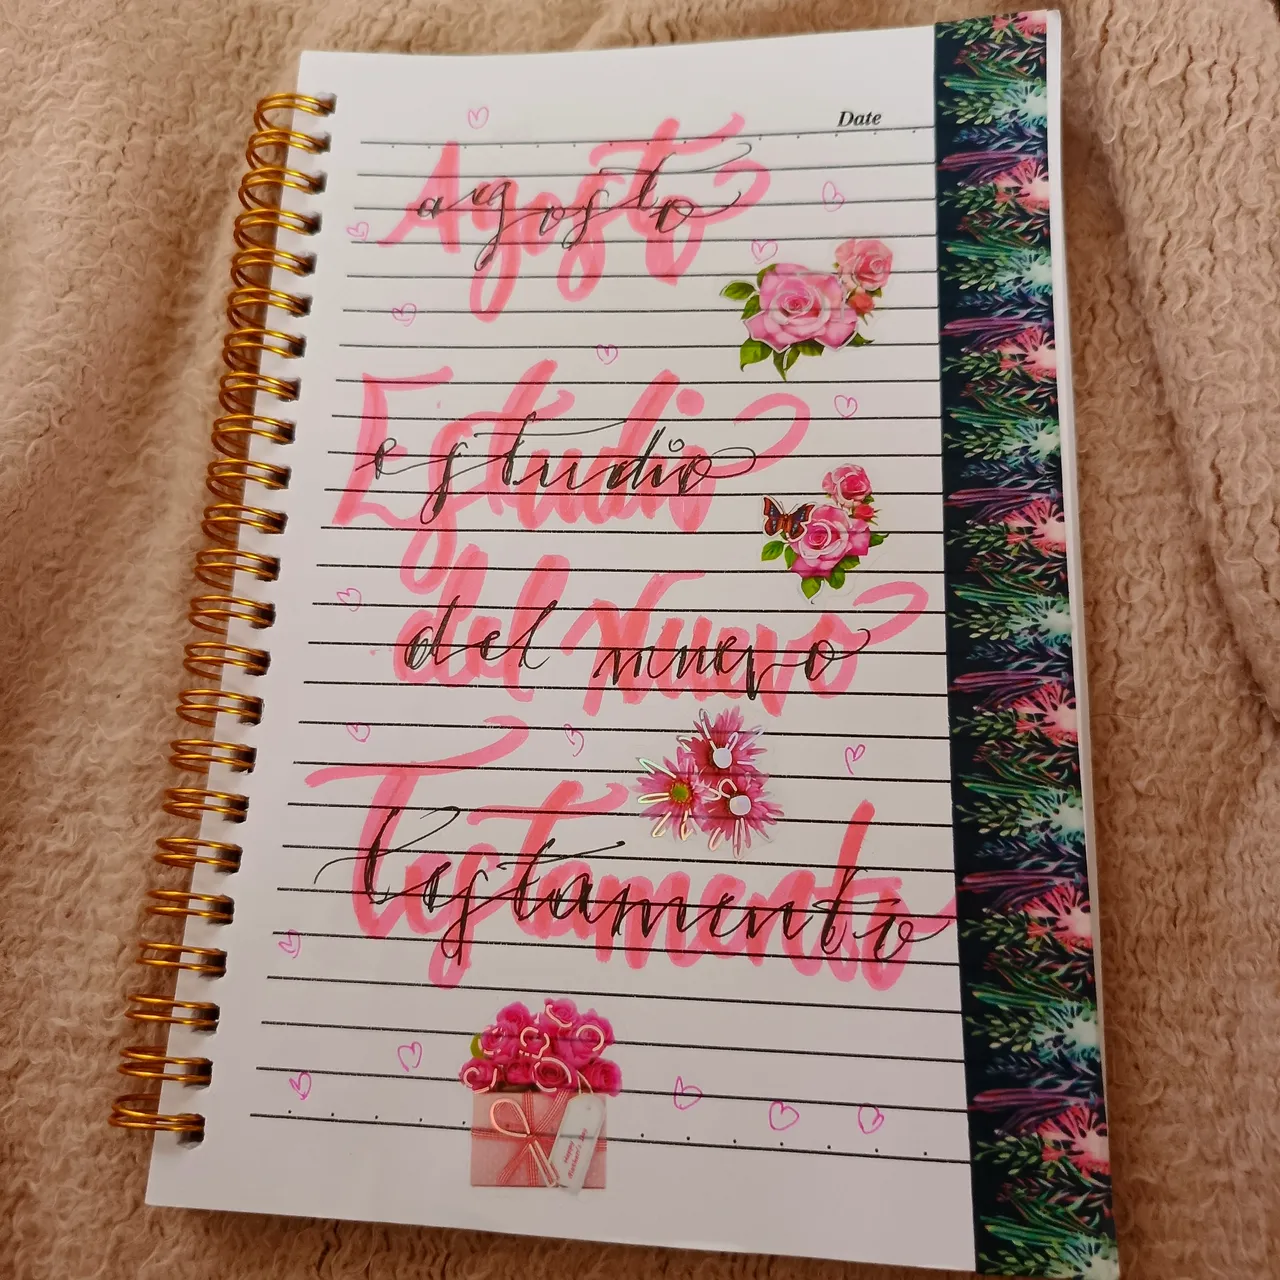 Date
Agosto
agosto
Estudio
estudio
del Nuevo
del nuevo
Testamento
testamento
Happy
Mother's Day